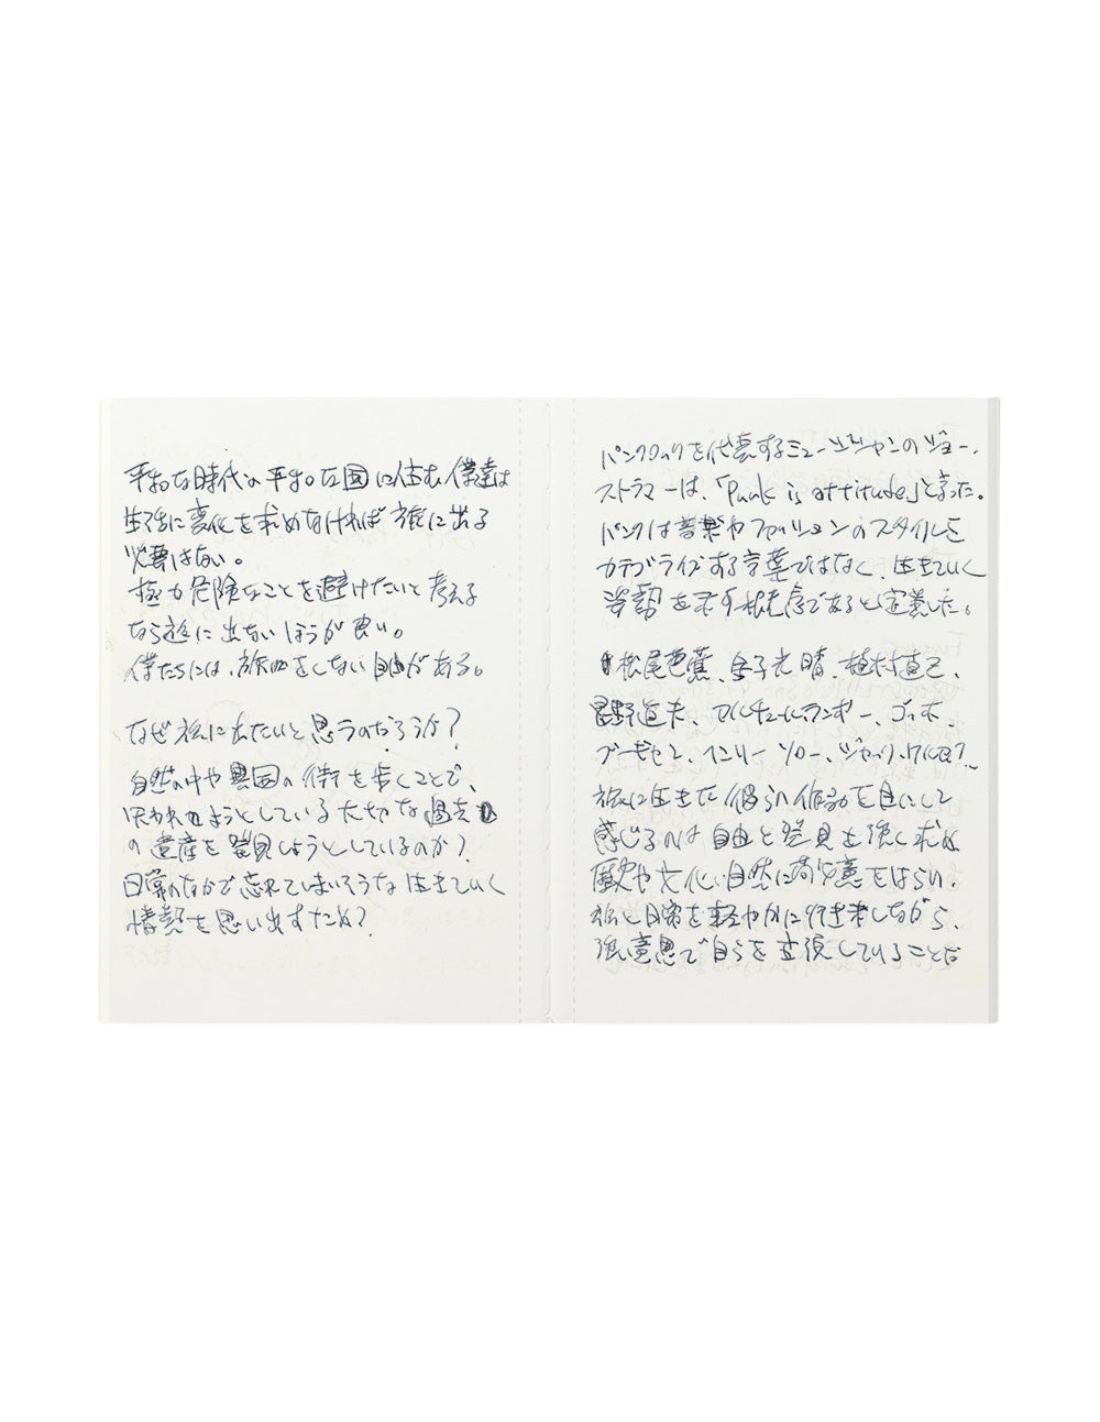 平和な時代の平和な国に住む僕達は
生活に変化を求めなければ旅に出る
必要はない。
極力危険なことを避けたいと考える
なら旅に出ないほうが良い。
僕たちには、旅をしない自由がある。
なぜ旅に出たいと思うのだろうか?
自然の中や異国の街を歩くことで、
失われようとしている大切な過去
の遺産を発見しようとしているのか?
日常のなかで忘れてしまいそうな生きていく
情熱を思い出すため?
パンクロックを代表するミュージシャンのジョー・
ストラマーは、「Punk is attitude」と言った。
パンクは音楽やファッションのスタイルを
カテゴライズする言葉ではなく、生きていく
姿勢を示す概念であると定義した。
松尾芭蕉、金子光晴、植村直己、
星野道夫、アルチュール・ランボー、ゴッホ、
ブーギャン、ヘンリー ソロー、ジャック・ケルアック
旅に生きた彼らの作品を目にして
感じるのは自由と発見を強く求め
歴史や文化、自然に敬意をはらい、
旅と日常を軽やかに行き来しながら、
強い意思で自らを主張していることだ